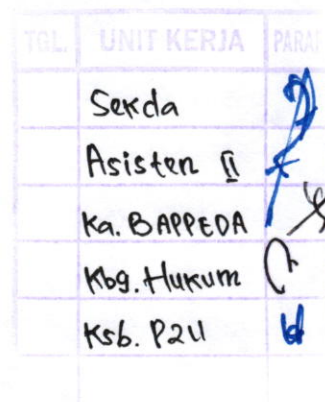 TGL. UNIT KERJA PARAF
Sekda
Asisten II
Ka. BAPPEDA
Kbg. Hukum
Ksb. P2U